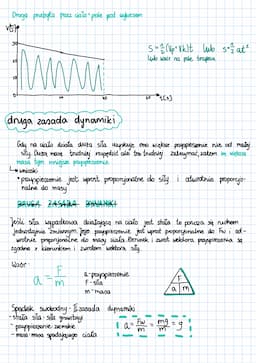 Droga przebyta przez ciało = pole pod wykresem
V[m/s]
t[s]
S = ½(Vp+Vk)t lub s = a/2 t²
lub wzór na pole trapezu
druga zasada dynamiki
Gdy na ciało działa siła uzyskuje ono większe przyspieszenie niż od małej
siły. Dużą masę trudniej rozpędzić ale też trudniej zatrzymać, zatem im większa
masa tym mniejsze przyspieszenie
wnioski
* przyspieszenie jest wprost proporcjonalne do siły i odwrotnie proporcjo-
nalne do masy
DRUGA ZASADA DYNAMIKI
Jeśli siła wypadkowa działająca na ciało jest stała to porusza się ruchem
jednostajnie zmiennym. Jego przyspieszenie jest wprost proporcjonalne do Fw i od-
wrotnie proporcjonalne do masy ciała. Kierunek i zwrot wektora przyspieszenia są
zgodne z kierunkiem i zwrotem wektora siły.
Wzór:
a = F/m
a - przyspieszenie
F - siła
m - masa
F
a m
Spadek swobodny - II zasada dynamiki
- stała siła - siła grawitacji
* przyspieszenie ziemskie
- masa - masa spadającego ciała
a = Fw/m = mg/m = g